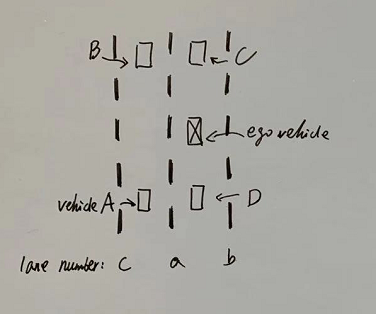 B C
ego vehicle
vehicle A D
lane number: C a b